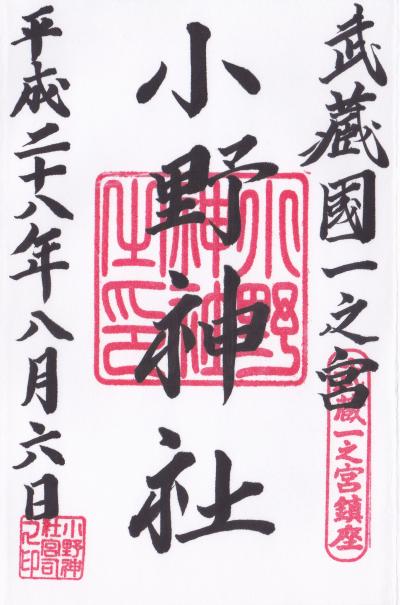 武蔵國一之宮
武蔵一之宮鎮座
小野神社
小野神社之印
平成二十八年八月六日
小野神社宮司之印